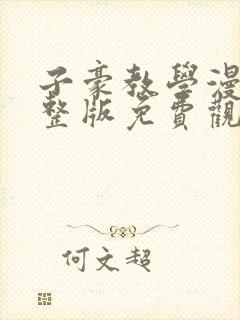 子豪教學漫
整版免費觀
何文超